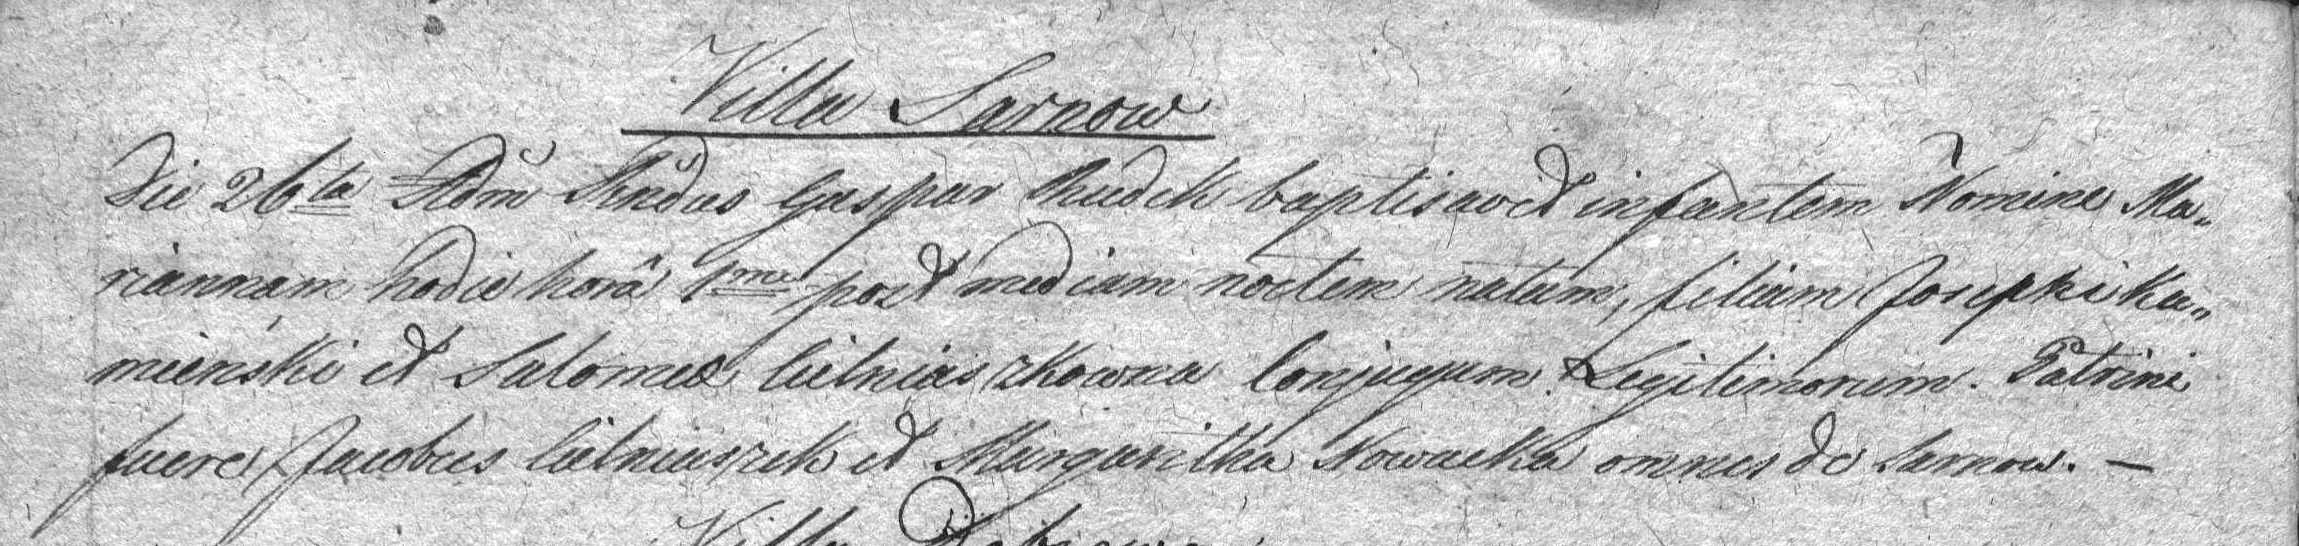 Villa Sarnow
Die 26ta Adm̃ Rñdus Gaspar Rudek baptisavit infantem Nomine Ma„
riannam hodie horâ 1ma post mediam noctem natam, filiam Josephi Ka„
mienski et Salomea Cielniaszkowna Conjugum Legitimorum. Patrini
fuere Jacobus Cielniaszek et Margaritha Nowacka omnes de Sarnow. —
Villa